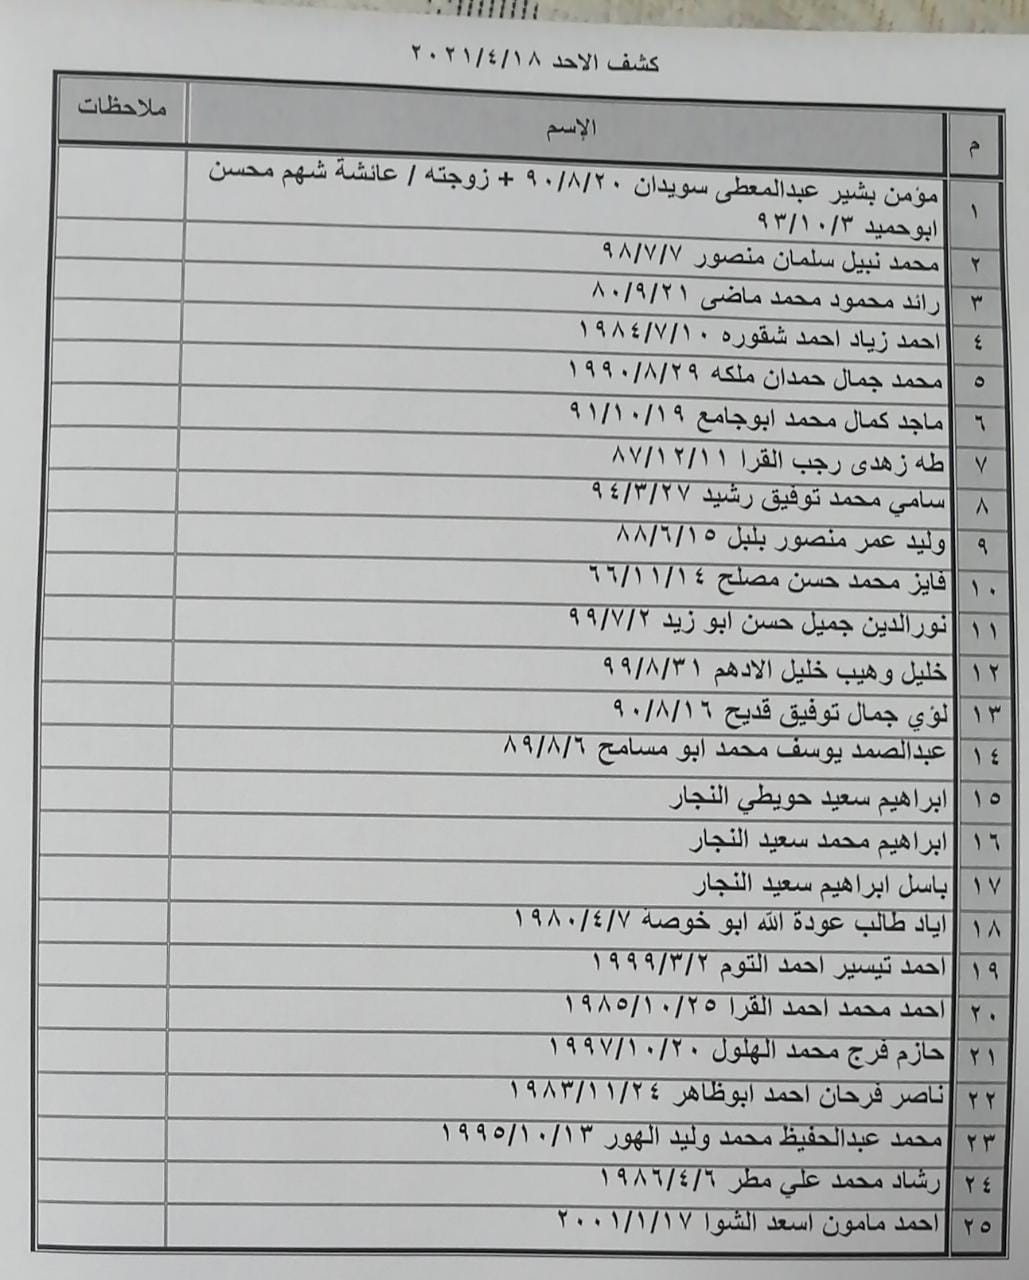 كشف الاحد ٢٠٢١/٤/١٨
م الإسم ملاحظات
١ مؤمن بشير عبدالمعطى سويدان ٩٠/٨/٢٠ + زوجته / عائشة شهم محسن
ابوحميد ٩٣/١٠/٣
٢ محمد نبيل سلمان منصور ٩٨/٧/٧
٣ رائد محمود محمد ماضى ٨٠/٩/٢١
٤ احمد زياد احمد شقوره ١٩٨٤/٧/١٠
٥ محمد جمال حمدان ملكه ١٩٩٠/٨/٢٩
٦ ماجد كمال محمد ابوجامع ٩١/١٠/١٩
٧ طه زهدى رجب القرا ٨٧/١٢/١١
٨ سامي محمد توفيق رشيد ٩٤/٣/٢٧
٩ وليد عمر منصور بلبل ٨٨/٦/١٥
١٠ فايز محمد حسن مصلح ٦٦/١١/١٤
١١ نورالدين جميل حسن ابو زيد ٩٩/٧/٢
١٢ خليل وهيب خليل الادهم ٩٩/٨/٣١
١٣ لؤي جمال توفيق قديح ٩٠/٨/١٦
١٤ عبدالصمد يوسف محمد ابو مسامح ٨٩/٨/٦
١٥ ابراهيم سعيد حويطي النجار
١٦ ابراهيم محمد سعيد النجار
١٧ باسل ابراهيم سعيد النجار
١٨ اياد طالب عودة الله ابو خوصة ١٩٨٠/٤/٧
١٩ احمد تيسير احمد التوم ١٩٩٩/٣/٢
٢٠ احمد محمد احمد القرا ١٩٨٥/١٠/٢٥
٢١ حازم فرج محمد الهلول ١٩٩٧/١٠/٢٠
٢٢ ناصر فرحان احمد ابوظاهر ١٩٨٣/١١/٢٤
٢٣ محمد عبدالحفيظ محمد وليد الهور ١٩٩٥/١٠/١٣
٢٤ رشاد محمد علي مطر ١٩٨٦/٤/٦
٢٥ احمد مامون اسعد الشوا ٢٠٠١/١/١٧